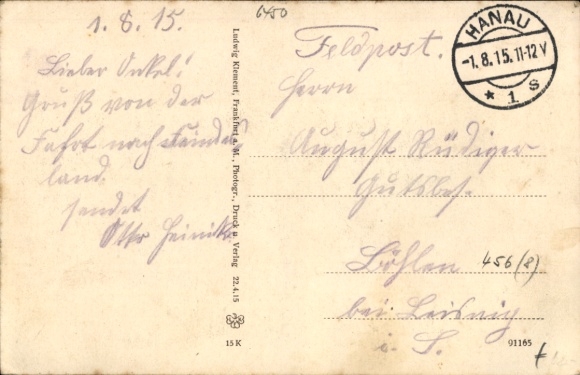 1. 8. 15.
Lieber Onkel!
Gruß von der
Fahrt nach Feindes
land.
sendet
Otto
6450
Ludwig Klement, Frankfurt a. M., Photogr., Druck u. Verlag 22.4.15
15 K
Feldpost.
HANAU
-1. 8. 15. 11-12 V
* 1 s
Herrn
August Rüdiger
Gutsbes.
Böhlen
456 (8)
bei Leisnig
i. S.
91165